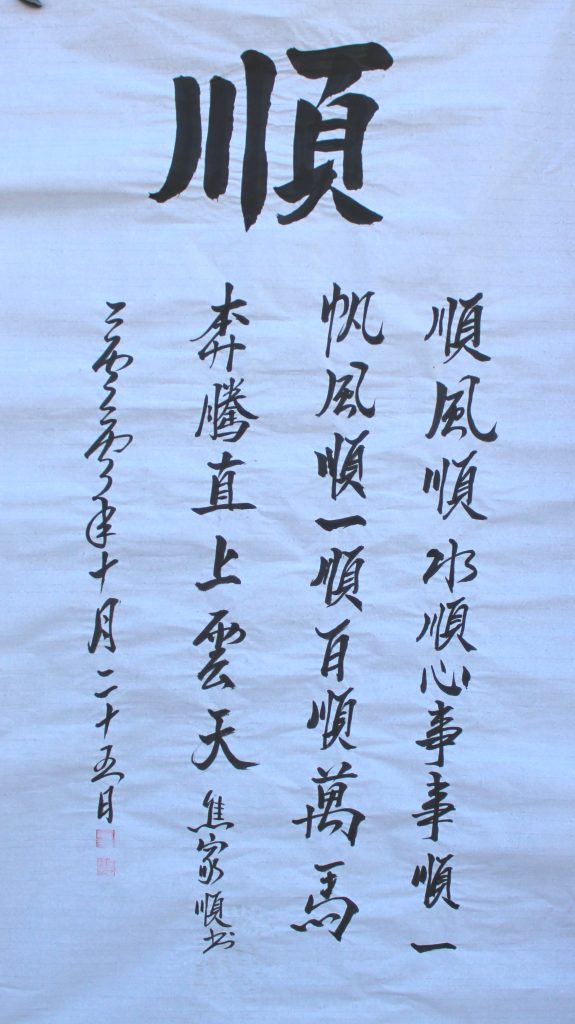 順
順風順水順心事事順一
帆風順一順百順萬馬
奔騰直上雲天 焦家順书
二零二零年十月二十五日